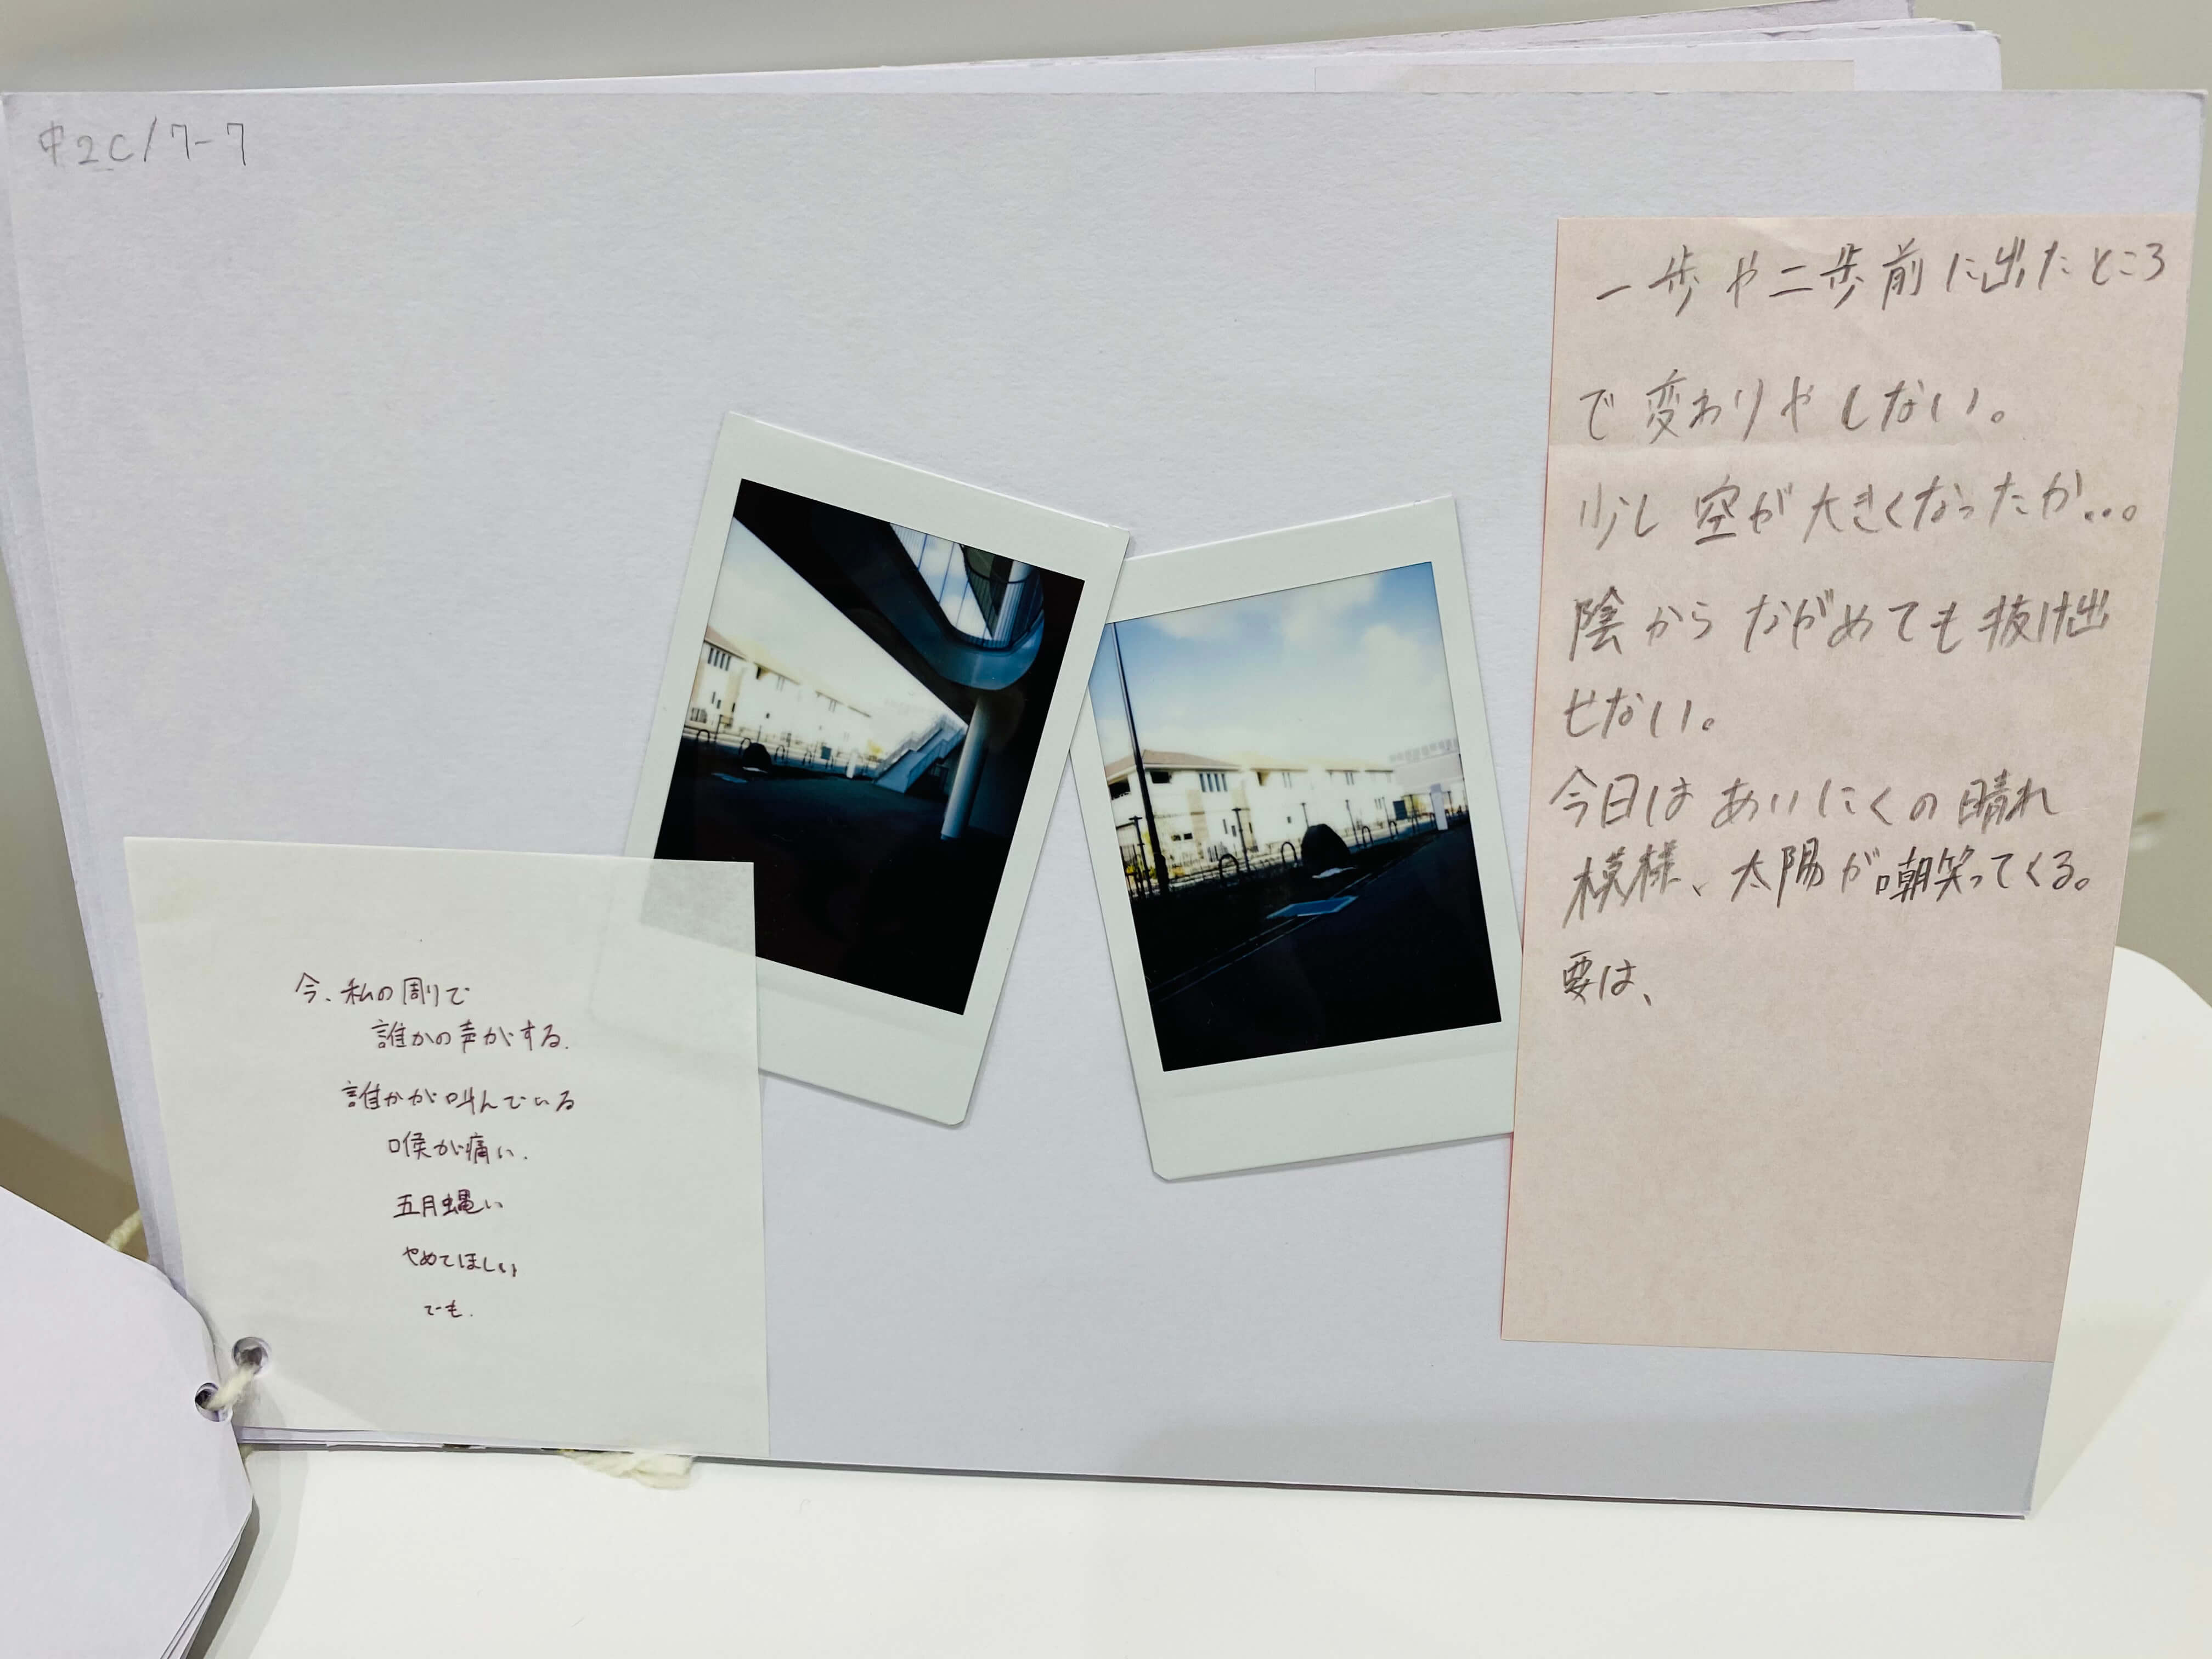 中2C/7-7
一歩や二歩前に出たところ
で変わりやしない。
少し空が大きくなったか…。
陰からながめても抜け出
せない。
今日はあいにくの晴れ
模様、太陽が嘲笑ってくる。
要は、
今、私の周りで
誰かの声がする.
誰かが叫んでいる
喉が痛い.
五月蝿い
やめてほしい
でも.